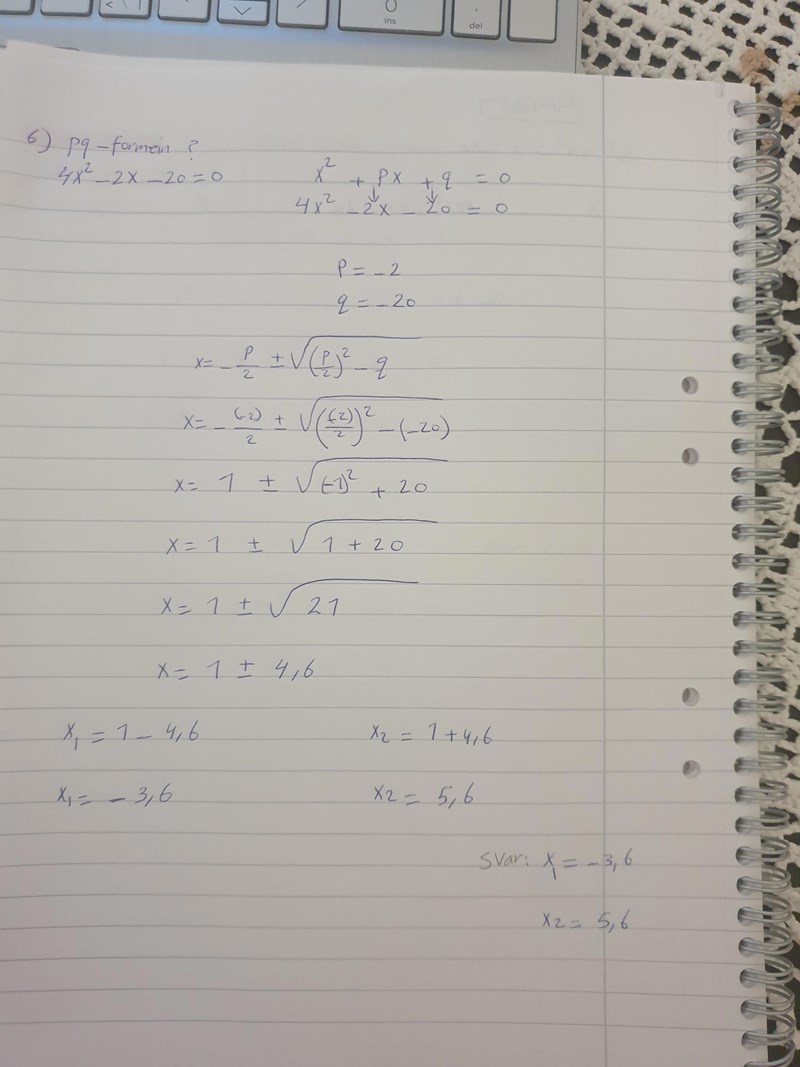 ins
del
6) pq-formeln ?
4x² - 2x - 20 = 0
x² + px + q = 0
4x² - 2x - 20 = 0
p = -2
q = -20
x = - p/2 ± √((p/2)² - q)
x = - (-2)/2 ± √(((-2)/2)² - (-20))
x = 1 ± √((-1)² + 20)
x = 1 ± √(1 + 20)
x = 1 ± √21
x = 1 ± 4,6
x₁ = 1 - 4,6
x₂ = 1 + 4,6
x₁ = - 3,6
x₂ = 5,6
Svar: x₁ = -3,6
x₂ = 5,6